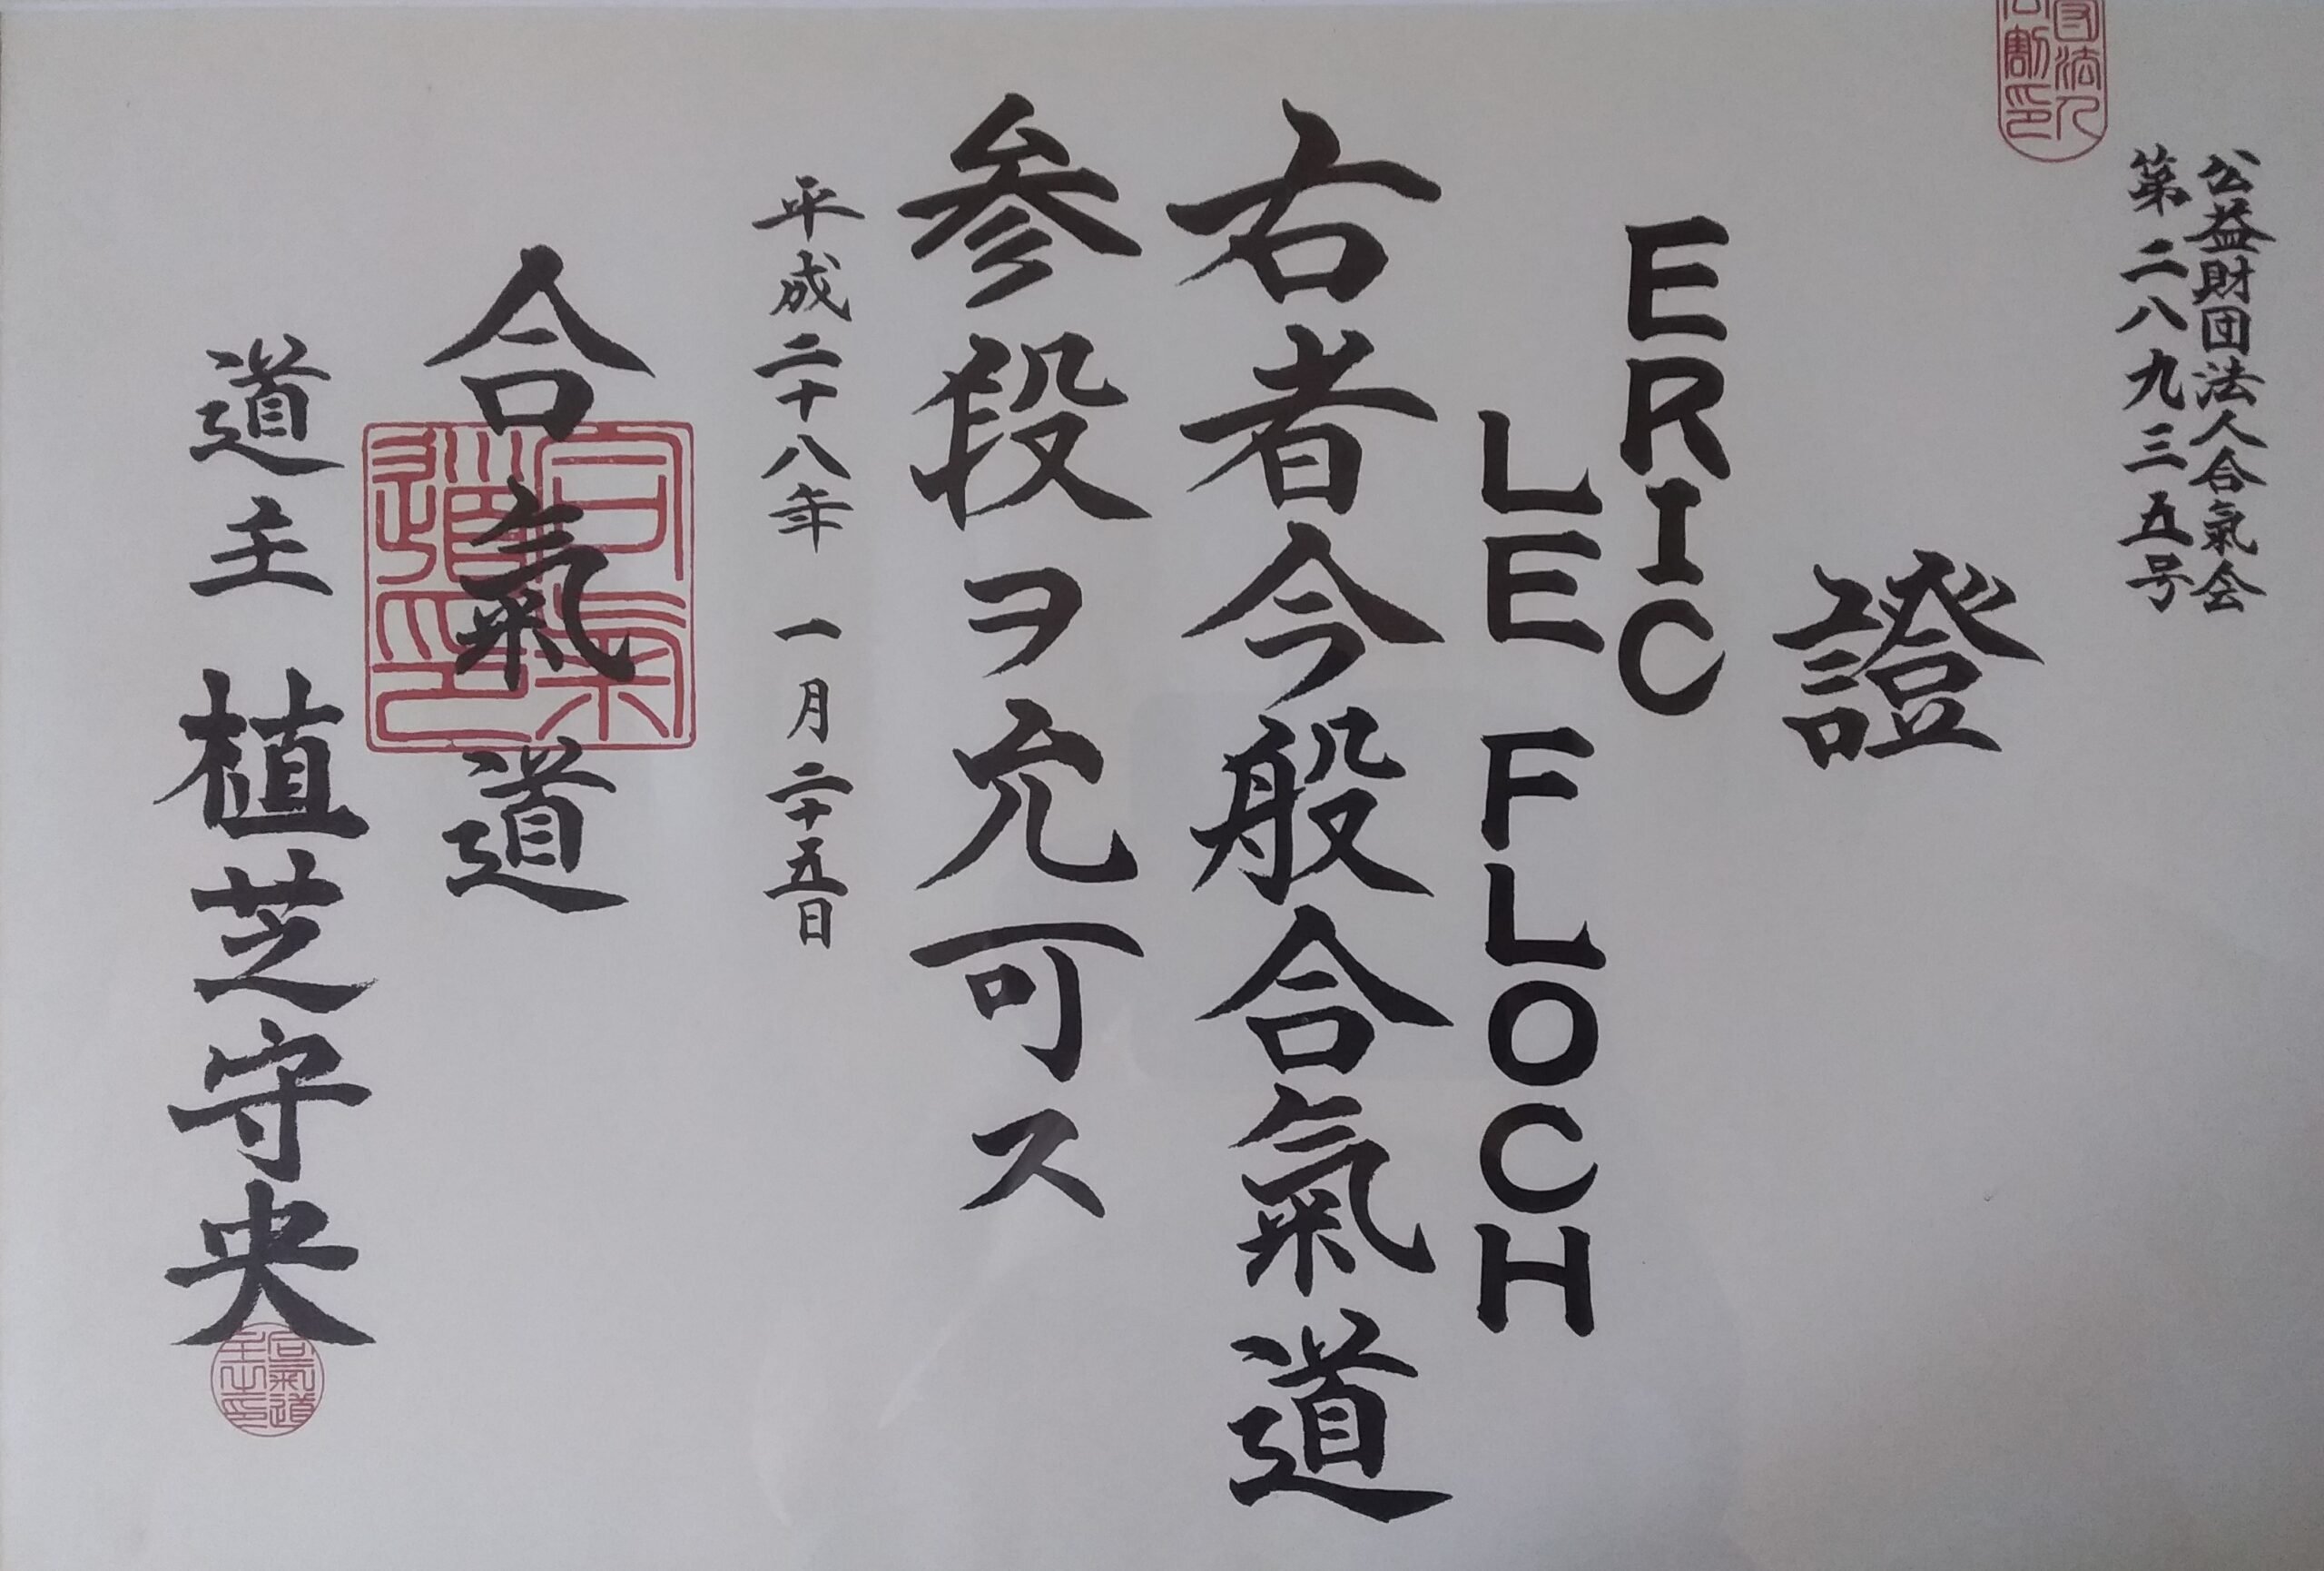 公益財団法人合氣会
第二八九三五号
證
ERIC
LE FLOCH
右者今般合氣道
参段ヲ允可ス
平成二十八年 一月二十五日
合氣道
道主 植芝守央
合氣道印
合氣道主之印